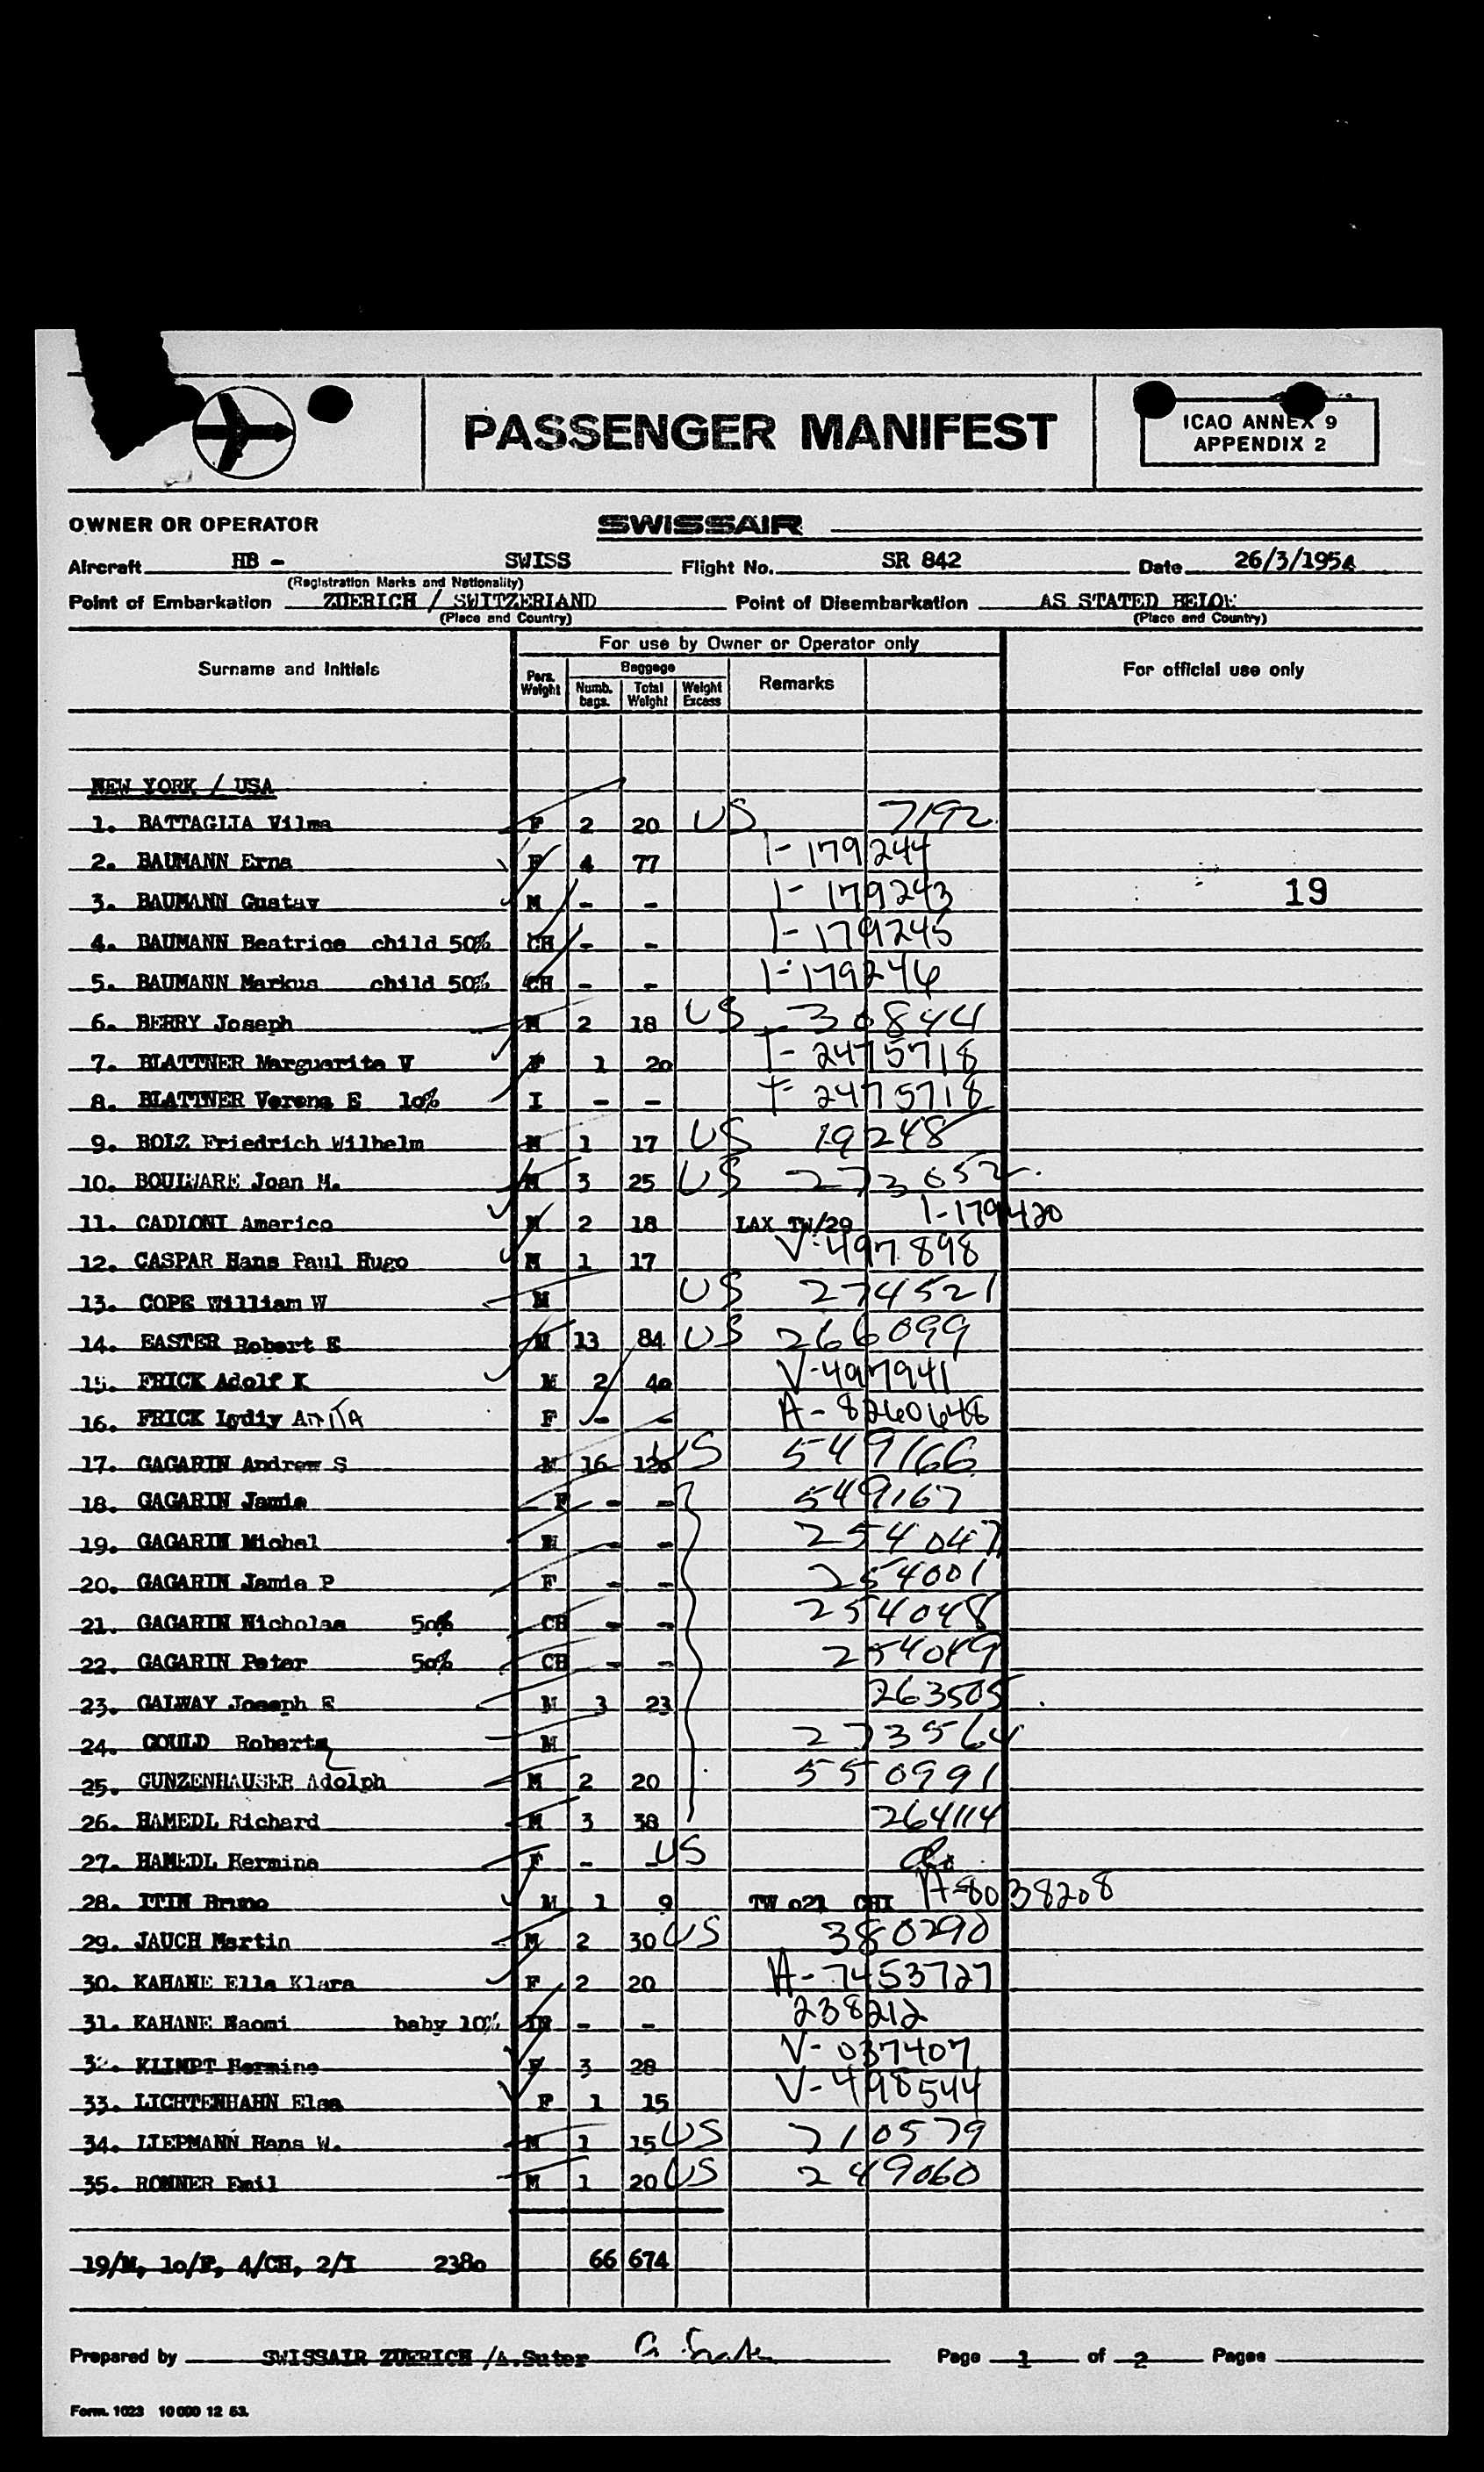 PASSENGER MANIFEST
ICAO ANNEX 9
APPENDIX 2
OWNER OR OPERATOR SWISSAIR
Aircraft HB - SWISS Flight No. SR 842 Date 26/3/1954
(Registration Marks and Nationality)
Point of Embarkation ZUERICH / SWITZERLAND Point of Disembarkation AS STATED BELOW
(Place and Country) (Place and Country)
For use by Owner or Operator only
Surname and Initials Pers. Weight Baggage Numb. bags. Total Weight Weight Excess Remarks For official use only
NEW YORK / USA
1. BATTAGLIA Vilma F 2 20 US 7192
2. BAUMANN Erna F 4 77 I-179244
3. BAUMANN Gustav M - - I-179243 19
4. BAUMANN Beatrice child 50% CH - - I-179245
5. BAUMANN Markus child 50% CH - - I-179246
6. BERRY Joseph M 2 18 US 30844
7. BLATTNER Marguerite V F 1 20 T-2475718
8. BLATTNER Verena E 10% I - - T-2475718
9. BOLZ Friedrich Wilhelm M 1 17 US 19248
10. BOULWARE Joan M. M 3 25 US 273652
11. CADLONI Americo M 2 18 LAX TW/29 I-179420
12. CASPAR Hans Paul Hugo M 1 17 V-497898
13. COPE William W M US 274521
14. EASTER Robert E M 13 84 US 266099
15. FRICK Adolf K M 2 40 V-497941
16. FRICK Lydiy ANITA F - - A-8260648
17. GAGARIN Andrew S M 16 120 US 549166
18. GAGARIN Jamie F - - 549167
19. GAGARIN Michel M - - 254047
20. GAGARIN Jamie P F - - 254001
21. GAGARIN Nicholas 50% CH - - 254048
22. GAGARIN Peter 50% CH - - 254049
23. GALWAY Joseph E M 3 23 263505
24. GOULD Roberts M 273564
25. GUNZENHAUSER Adolph M 2 20 550991
26. HAMEDL Richard M 3 38 264114
27. HAMEDL Hermine F - - US do
28. ITIN Bruno M 1 9 TW 021 CHI A-8038208
29. JAUCH Martin M 2 30 US 380290
30. KAHANE Ella Klara F 2 20 A-7453727
31. KAHANE Naomi baby 10% IN - - 238212
32. KLIMPT Hermine F 3 28 V-037407
33. LICHTENHAHN Elsa F 1 15 V-498544
34. LIEPMANN Hans W. M 1 15 US 210579
35. ROMNER Emil M 1 20 US 249060
19/M, 10/F, 4/CH, 2/I 2380 66 674
Prepared by SWISSAIR ZUERICH /A.Suter Page 1 of 2 Pages
Form. 1023 10 000 12 53.